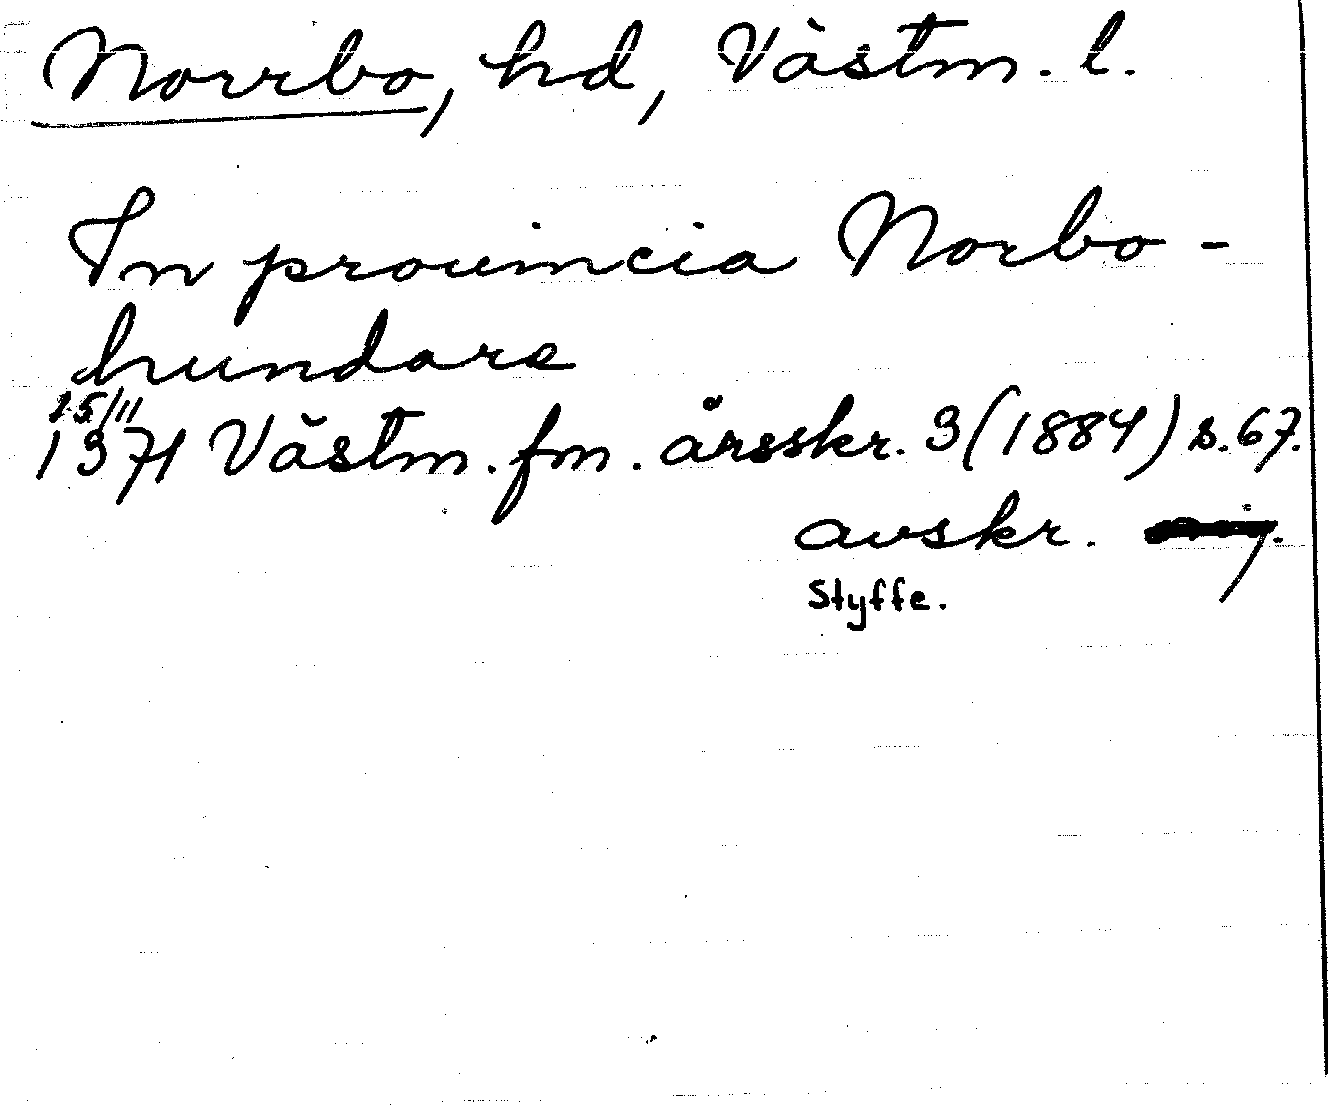 Norrbo, hd, Västm. l.
In prouincia Norbo-
hundare
15/11
1371 Västm. fm. årsskr. 3 (1884) s. 67.
avskr.
Styffe.